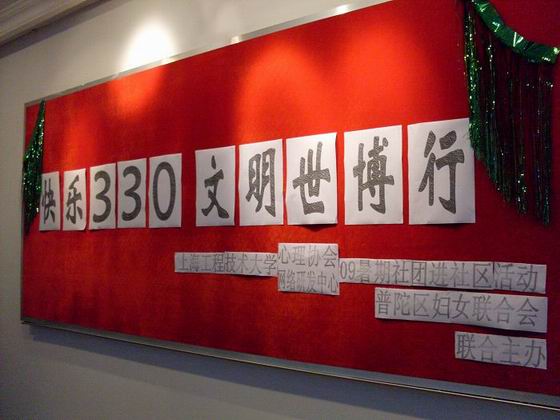 快乐330 文明世博行
上海工程技术大学 心理协会 09暑期社团进社区活动
网络研发中心
普陀区妇女联合会
联合主办